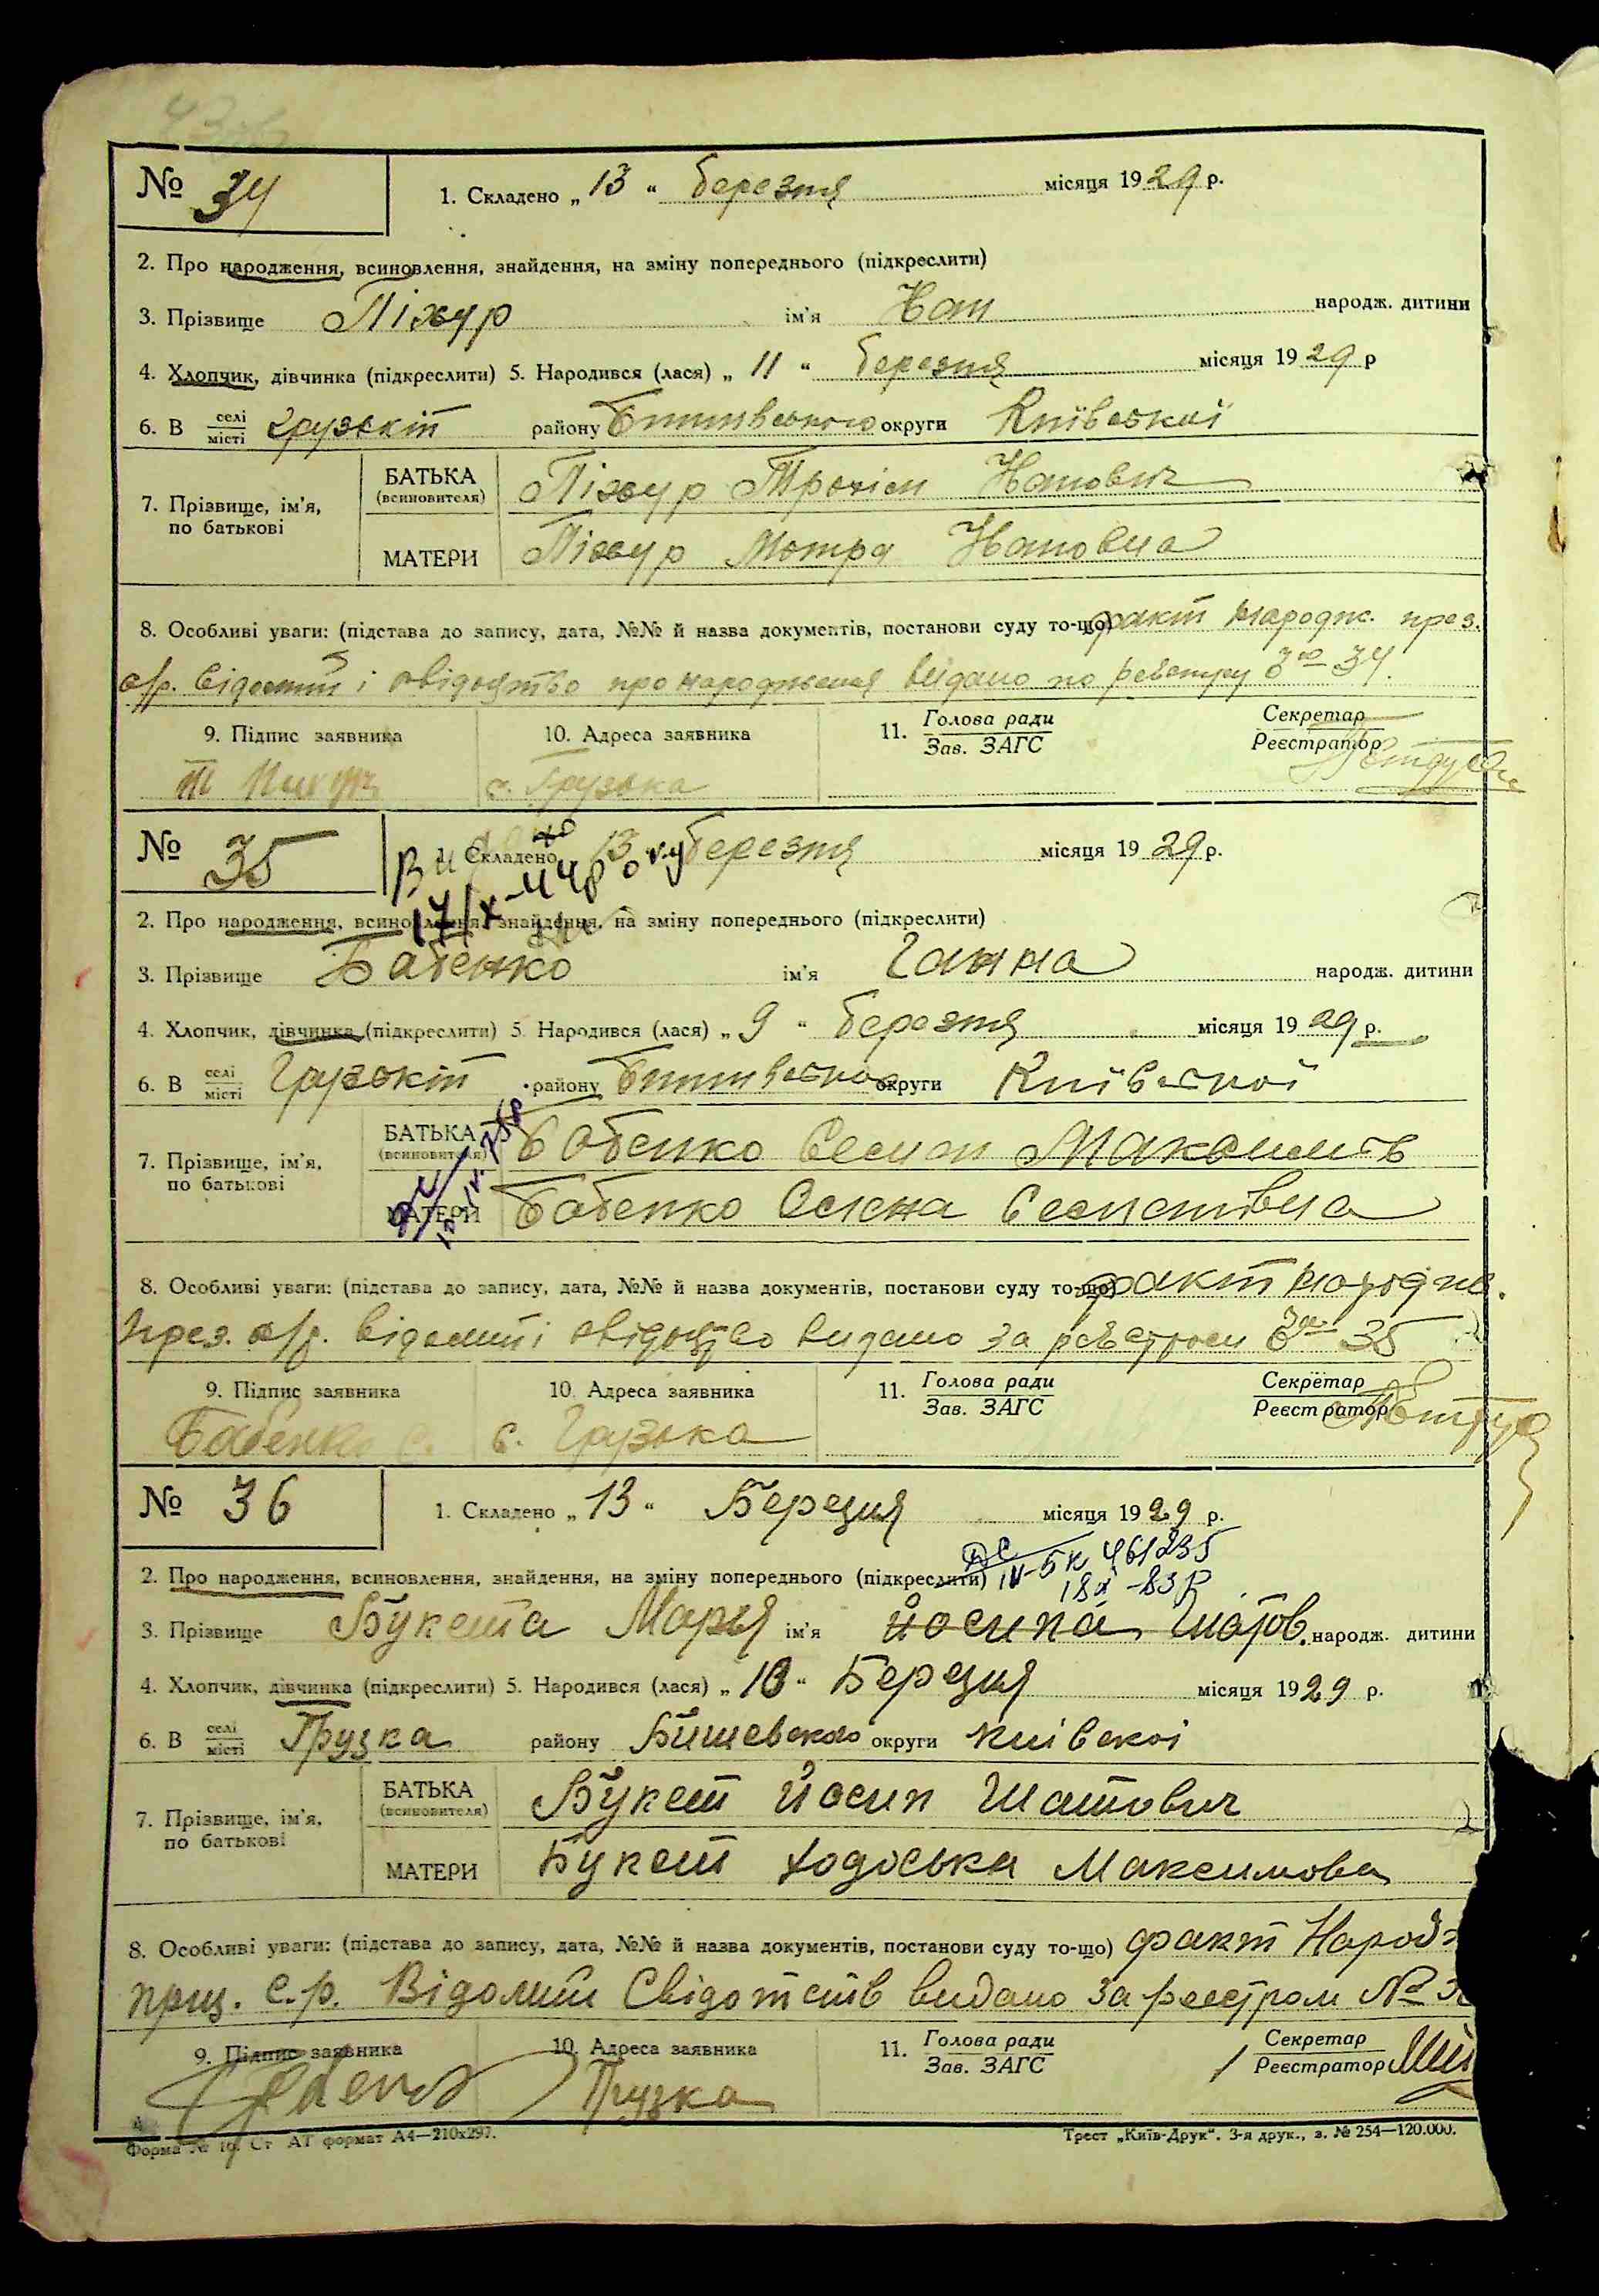 № 34
1. Складено „ 13 “ березня місяця 1929 р.
2. Про народження, всиновлення, знайдення, на зміну попереднього (підкреслити)
3. Прізвище Піжур ім’я Йон народж. дитини
4. Хлопчик, дівчинка (підкреслити) 5. Народився (лася) „ 11 “ березня місяця 1929 р
6. В селі/місті Грузькій району округи Київської
7. Прізвище, ім’я, по батькові
БАТЬКА (всиновителя) Піжур Трохим
МАТЕРИ Піжур Мотря
8. Особливі уваги: (підстава до запису, дата, №№ й назва документів, постанови суду то-що) факт народж. през.
с/р. відомий і свідоцтво про народження видано по реєстру за 34.
9. Підпис заявника
10. Адреса заявника
11. Голова ради / Зав. ЗАГС
Секретар / Реєстратор
с. Грузька
№ 35
1. Складено 13 березня місяця 1929 р.
2. Про народження, всиновлення, знайдення, на зміну попереднього (підкреслити)
3. Прізвище Бабенко ім’я Ганна народж. дитини
4. Хлопчик, дівчинка (підкреслити) 5. Народився (лася) „ 9 “ березня місяця 1929 р.
6. В селі/місті Грузькій району округи Київської
7. Прізвище, ім’я, по батькові
БАТЬКА (всиновителя) Бабенко Семен
МАТЕРИ Бабенко Олена
8. Особливі уваги: (підстава до запису, дата, №№ й назва документів, постанови суду то-що) факт народж.
през. с/р. відомий і свідоцтво видано за реєстром за 35
9. Підпис заявника
10. Адреса заявника
11. Голова ради / Зав. ЗАГС
Секретар / Реєстратор
Бабенко С. с. Грузька
№ 36
1. Складено „ 13 “ Березня місяця 1929 р.
461235
2. Про народження, всиновлення, знайдення, на зміну попереднього (підкреслити)
3. Прізвище Букета Марія ім’я йосипа народж. дитини
4. Хлопчик, дівчинка (підкреслити) 5. Народився (лася) „ “ Березня місяця 1929 р.
6. В селі/місті Грузка району Бишевского округи київскої
7. Прізвище, ім’я, по батькові
БАТЬКА (всиновителя) Букет йосип
МАТЕРИ Букет ходоська Максимова
8. Особливі уваги: (підстава до запису, дата, №№ й назва документів, постанови суду то-що) факт Народ
през. с.р. Відомий Свідотств видано за реєстром №
9. Підпис заявника
10. Адреса заявника
11. Голова ради / Зав. ЗАГС
Секретар / Реєстратор
Грузка
Форма № 19. Ст АТ формат А4—210x297.
Трест „Київ-Друк“. 3-я друк., з. № 254—120.000.